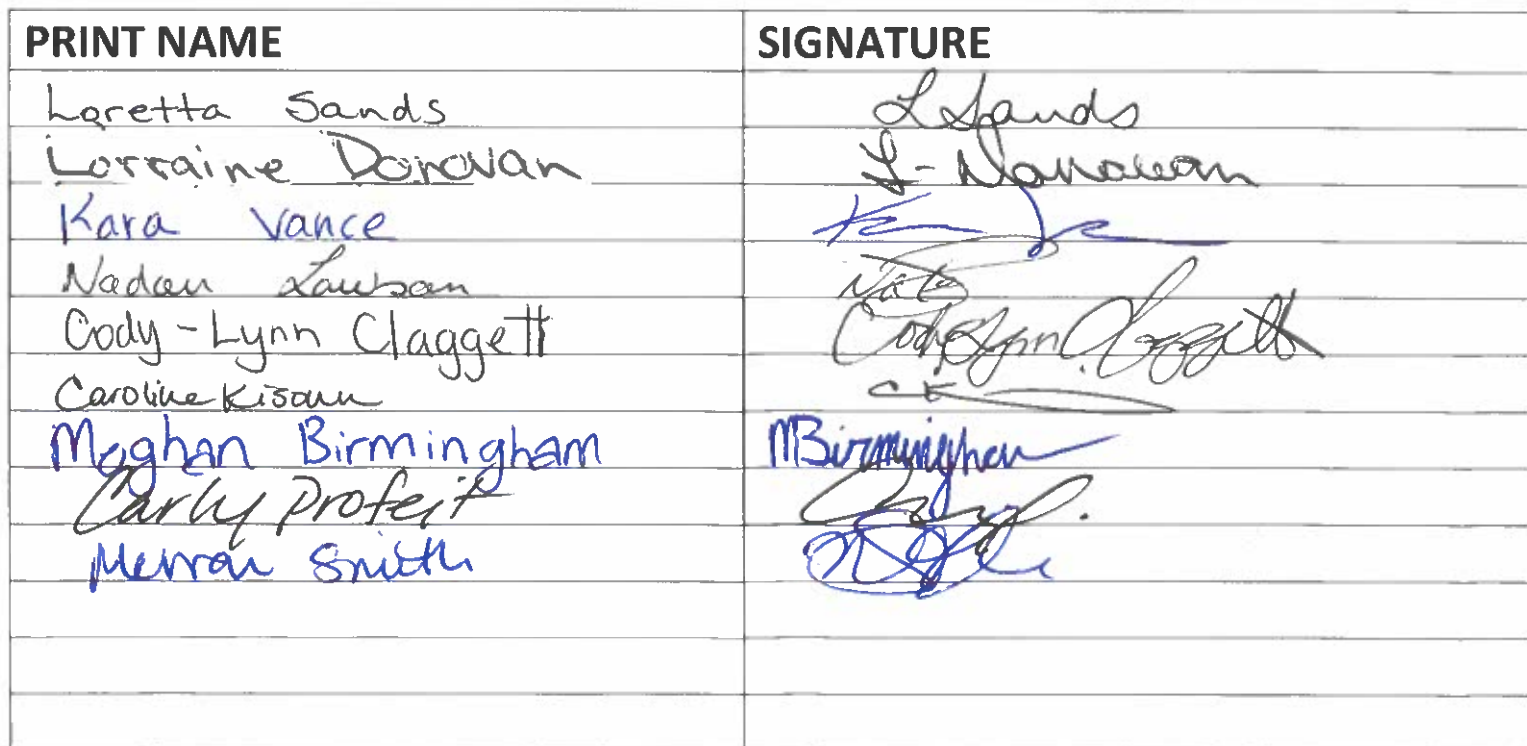 PRINT NAME SIGNATURE
Loretta Sands L Sands
Lorraine Donovan L-Donovan
Kara Vance
Lawson
Cody-Lynn Claggett Cody Lynn Claggett
Caroline CK
Meghan Birmingham MBirmingham
Carly Profeit
Merran Smith